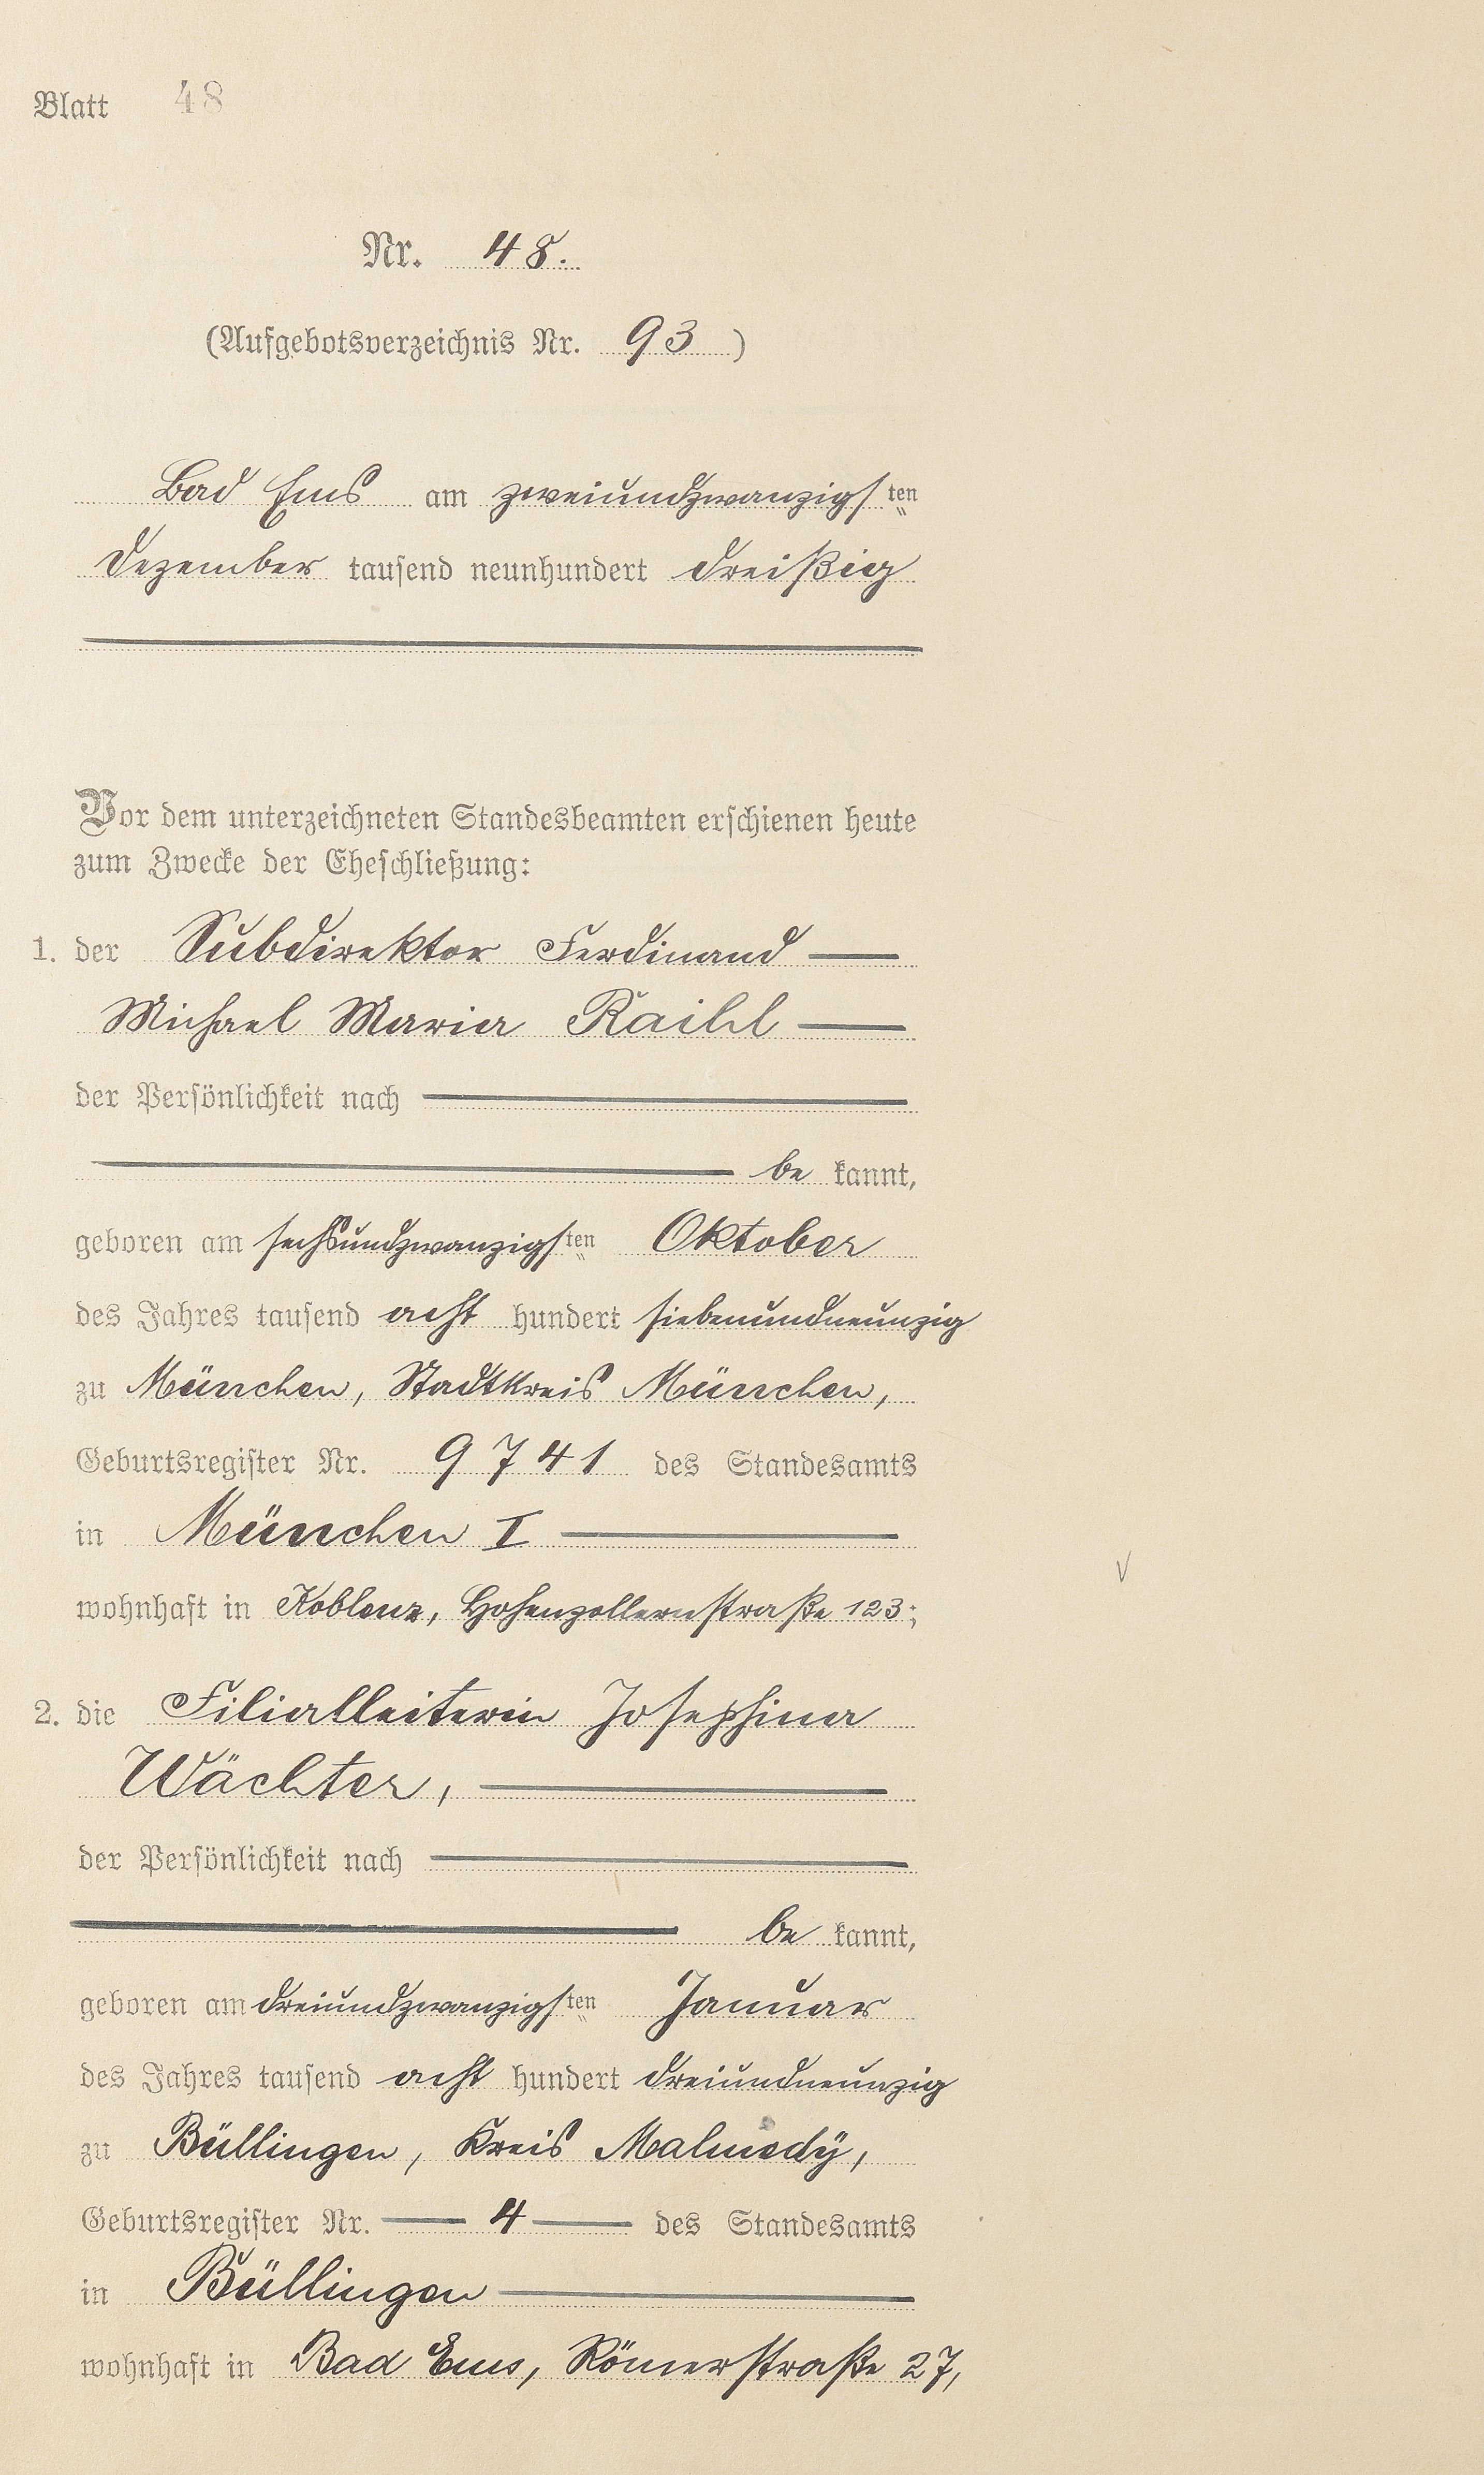 Blatt 48
Nr. 48.
(Aufgebotsverzeichnis Nr. 93)
Bad Ems am zweiundzwanzigsten
Dezember tausend neunhundert dreißig
Vor dem unterzeichneten Standesbeamten erschienen heute
zum Zwecke der Eheschließung:
1. der Subdirektor Ferdinand
Michael Maria Raihl
der Persönlichkeit nach
be kannt,
geboren am sechsundzwanzigsten Oktober
des Jahres tausend acht hundert siebenundneunzig
zu München, Stadtkreis München,
Geburtsregister Nr. 9741 des Standesamts
in München I
wohnhaft in Koblenz, Hohenzollernstraße 123;
2. die Filialleiterin Josephina
Wächter,
der Persönlichkeit nach
be kannt,
geboren am dreiundzwanzigsten Januar
des Jahres tausend acht hundert dreiundneunzig
zu Büllingen, Kreis Malmedÿ,
Geburtsregister Nr. 4 des Standesamts
in Büllingen
wohnhaft in Bad Ems, Römerstraße 27,